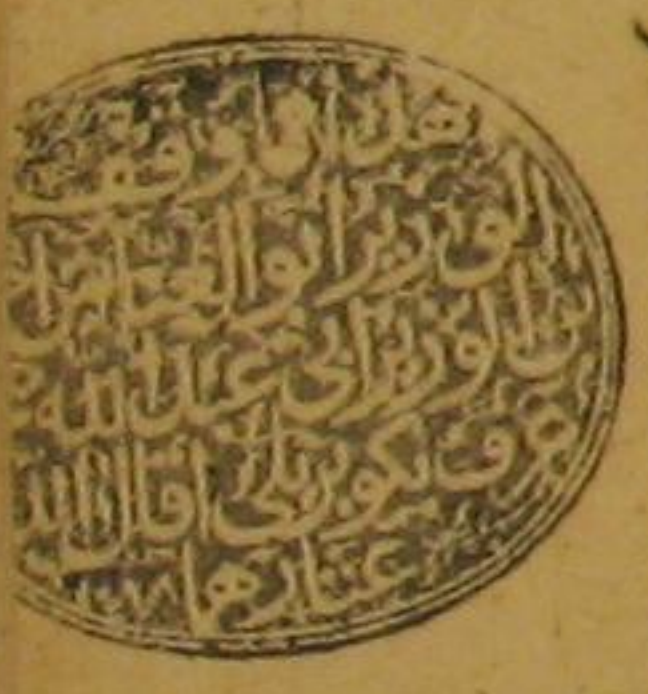 هذا ما وقف
الوزير ابو العباس
بن الوزير ابي عبد الله
عرف بكوبريلي اقال الله
عثارهما